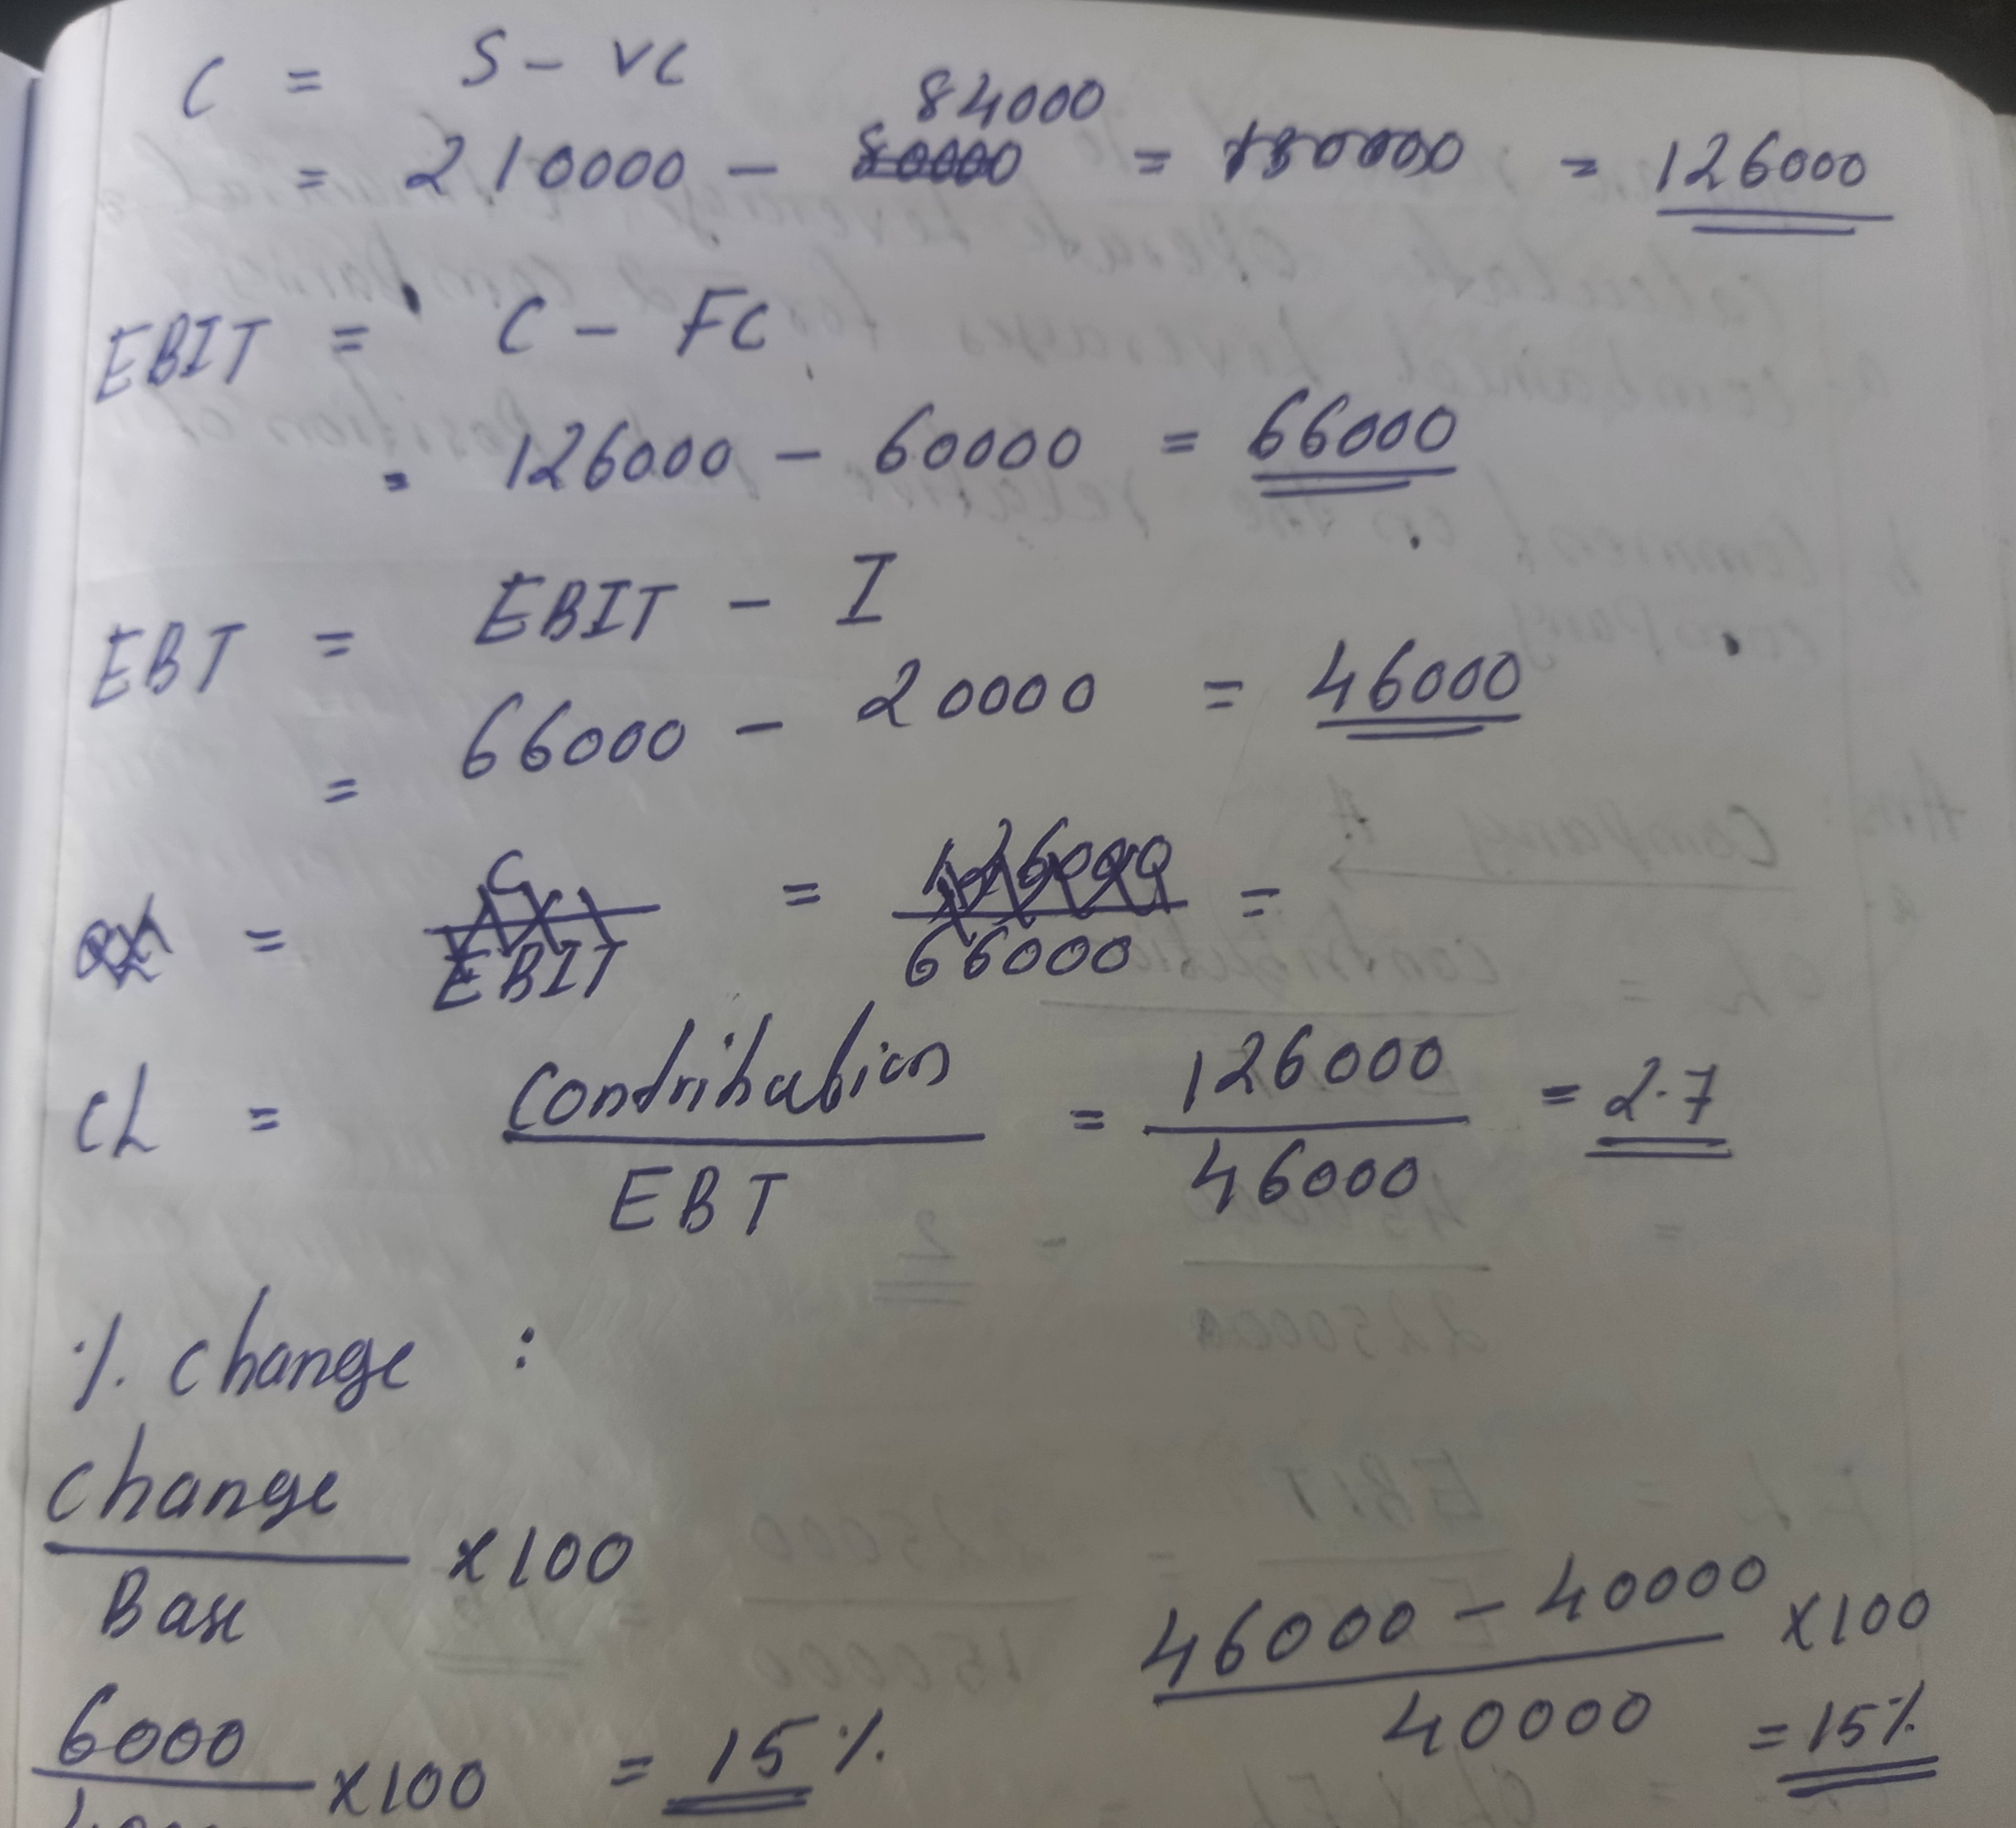 C = S - VC
84000
= 210000 - 80000 = 130000 = 126000
EBIT = C - FC
= 126000 - 60000 = 66000
EBT = EBIT - I
= 66000 - 20000 = 46000
OL = C / EBIT = 126000 / 66000 =
CL = Contribution / EBT = 126000 / 46000 = 2.7
% change :
Change / Base × 100
46000 - 40000 / 40000 × 100 = 15%
6000 / × 100 = 15%